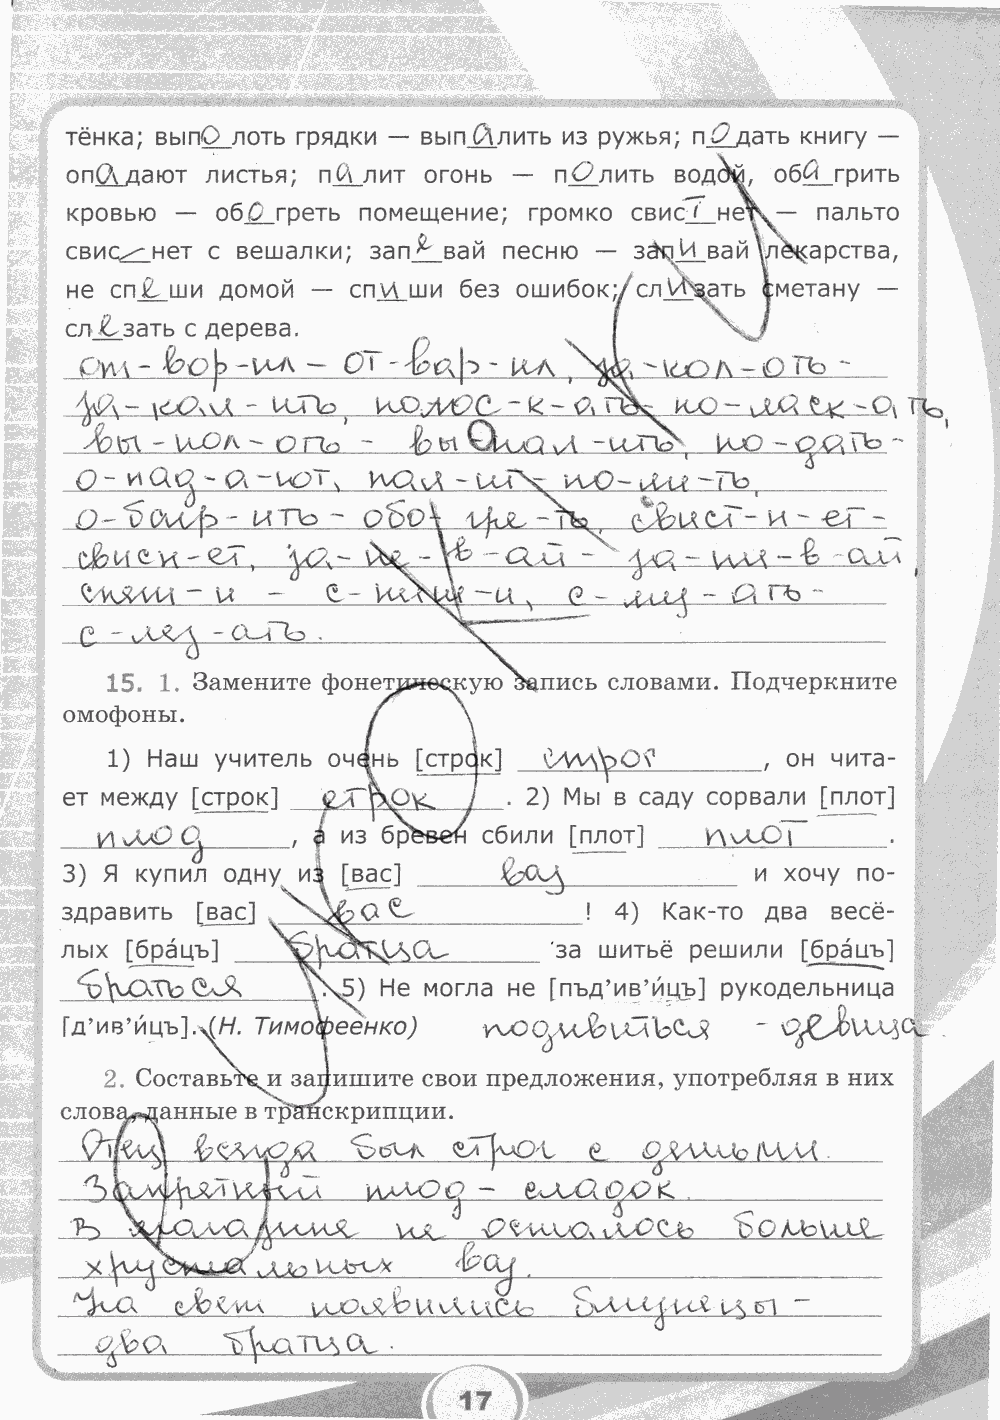 тёнка; выпо лоть грядки — выпалить из ружья; подать книгу —
опадают листья; палит огонь — полить водой, обагрить
кровью — обогреть помещение; громко свистнет — пальто
свис—нет с вешалки; запевай песню — запивай лекарства,
не спеши домой — спиши без ошибок; слизать сметану —
слезать с дерева.
от-вор-ил – от-вар-ил, за-кол-оть-
за-кал-ить, полос-к-ать- по-ласк-ать,
вы-пол-оть - вы-пал-ить, по-дать-
о-пад-а-ют, пал-ит-по-ли-ть,
о-багр-ить-обо-гре-ть, свист-н-ет-
свисн-ет, за-пе-в-ай- за-пи-в-ай,
спеш-и - с-пиш-и, с-лиз-ать-
с-лез-ать.
15. 1. Замените фонетическую запись словами. Подчеркните
омофоны.
1) Наш учитель очень [строк] строг, он чита-
ет между [строк] строк. 2) Мы в саду сорвали [плот]
плод, а из бревен сбили [плот] плот.
3) Я купил одну из [вас] ваз и хочу по-
здравить [вас] вас! 4) Как-то два весё-
лых [бра́цъ] братца за шитьё решили [бра́цъ]
браться. 5) Не могла не [пъд'ив'и́цъ] рукодельница
[д'ив'и́цъ]. (Н. Тимофеенко) подивиться - девица.
2. Составьте и запишите свои предложения, употребляя в них
слова, данные в транскрипции.
Отец всегда был строг с детьми.
Запретный плод - сладок.
В магазине не осталось больше
хрустальных ваз.
На свет появились близнецы -
два братца.
17